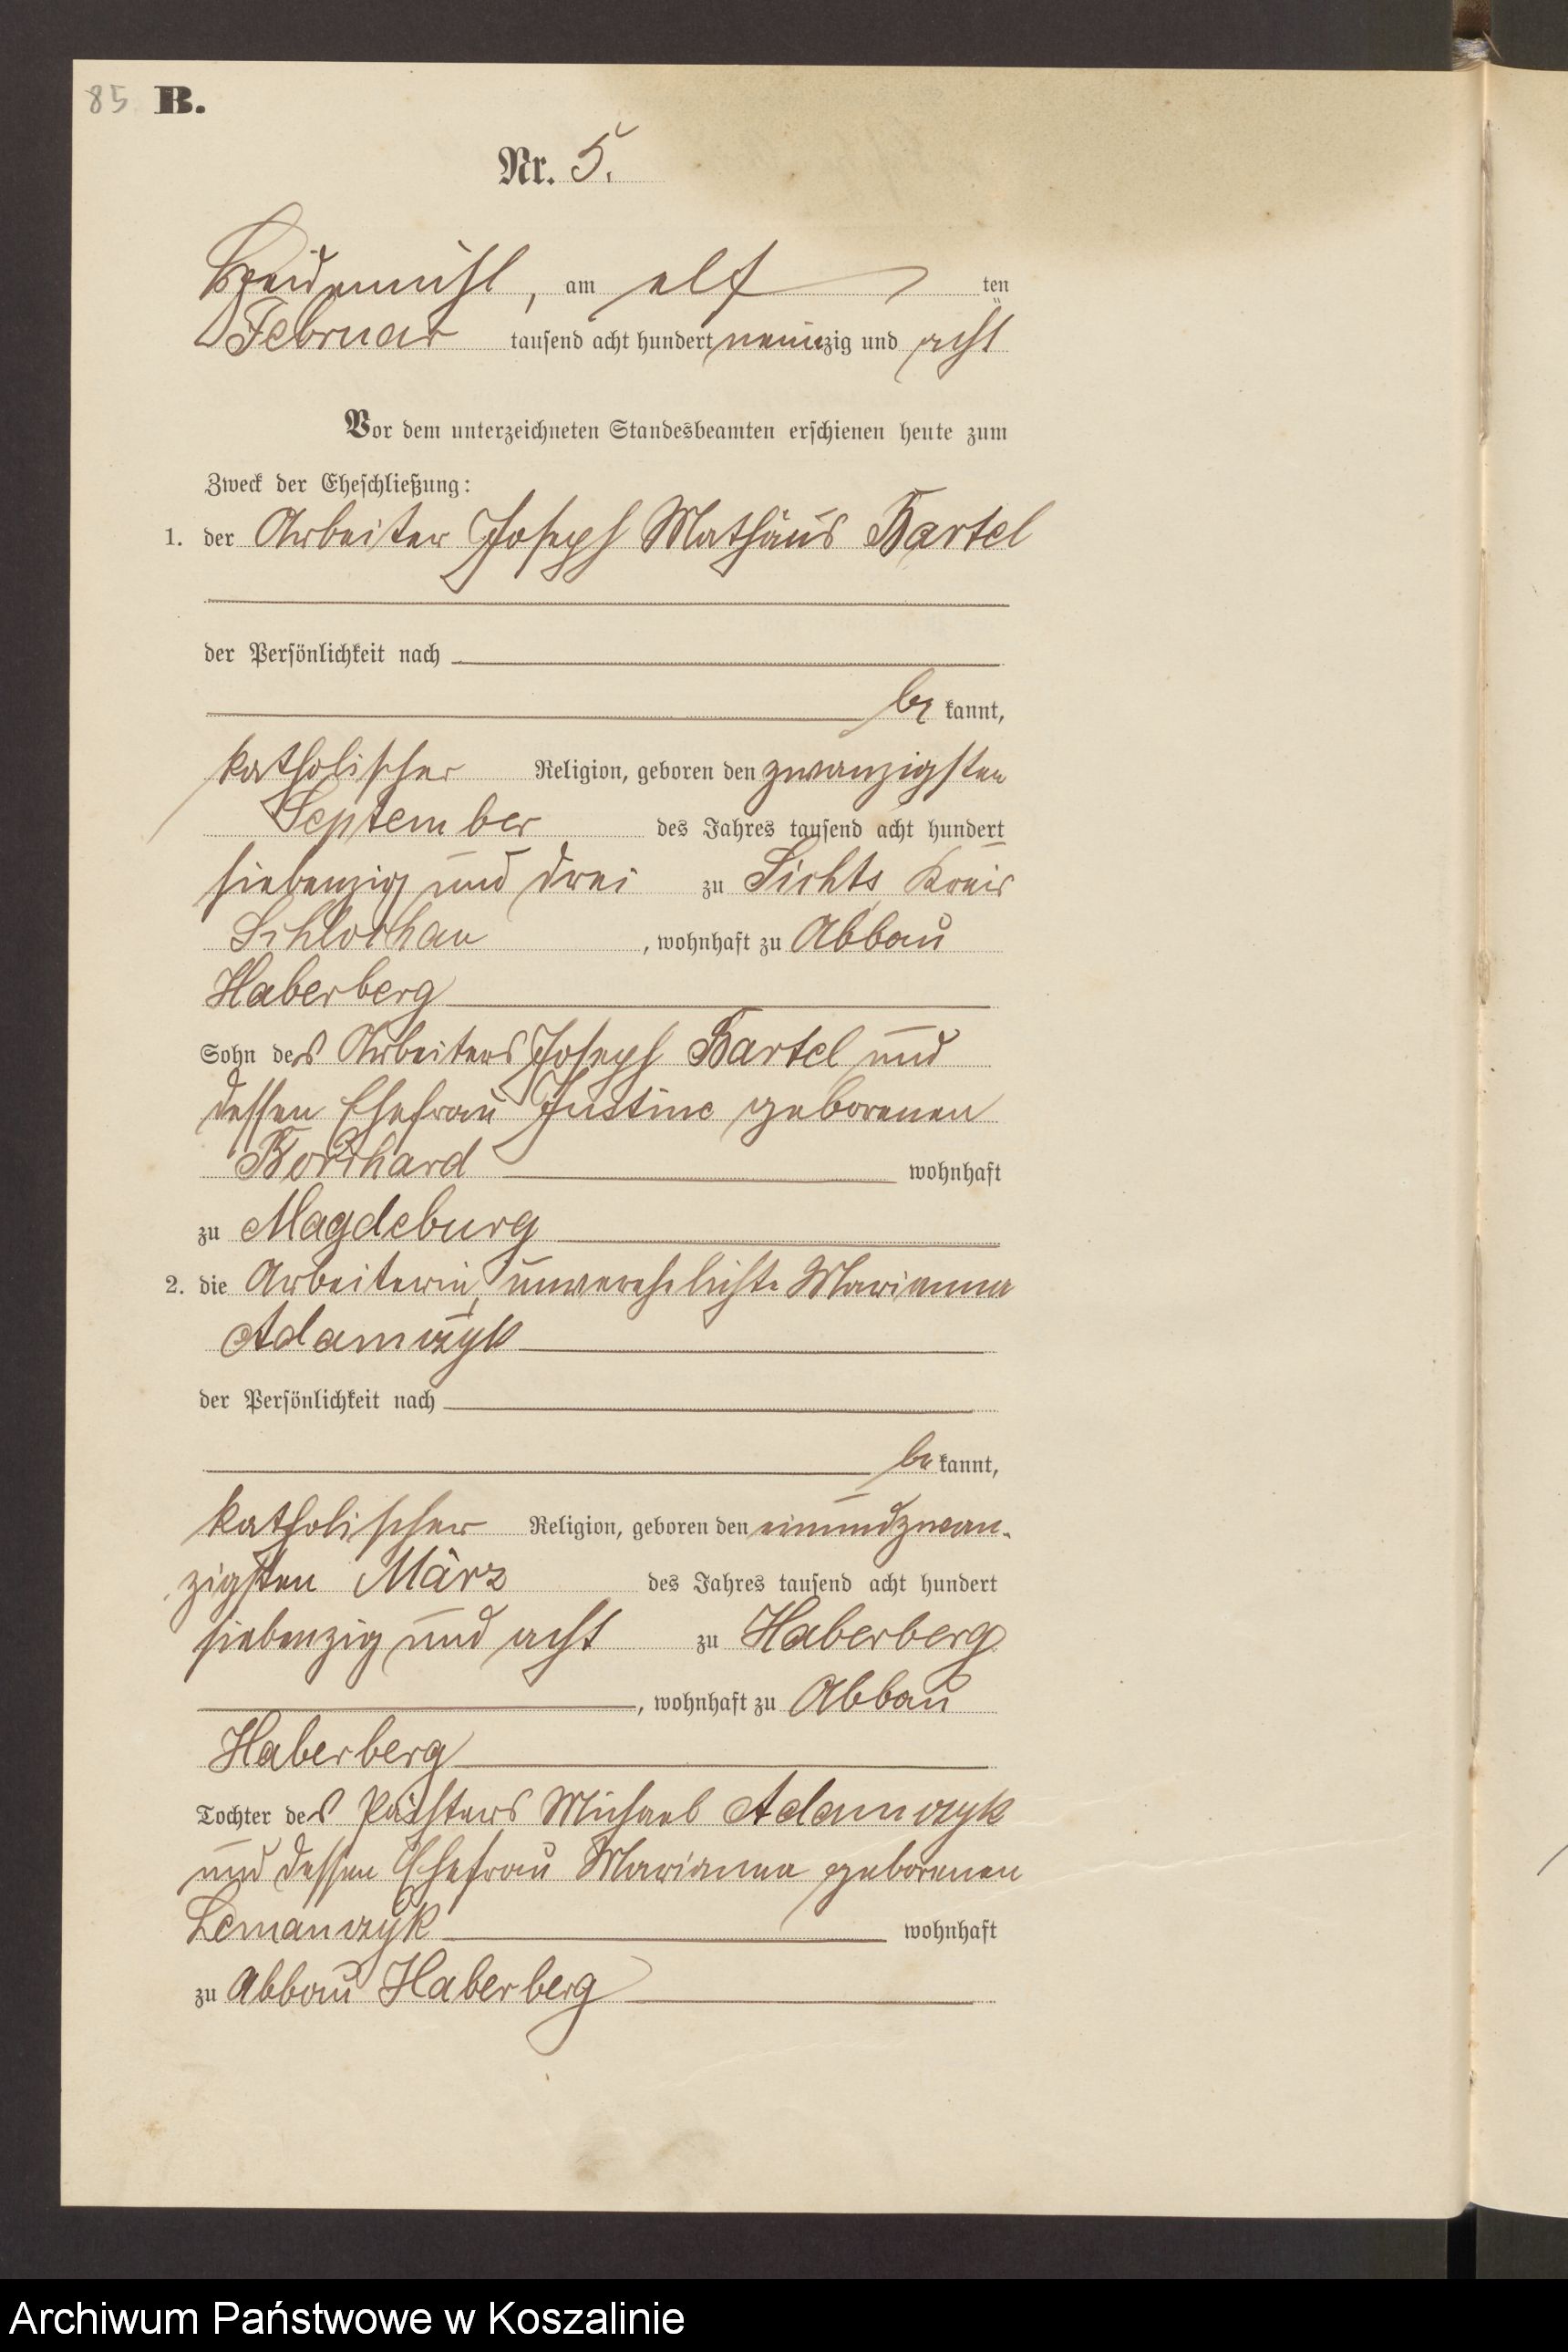 85 B.
Nr. 5.
Heidemühl, am elf ten
Februar tausend acht hundert neunzig und acht
Vor dem unterzeichneten Standesbeamten erschienen heute zum
Zweck der Eheschließung:
1. der Arbeiter Joseph Mathäus Bartel
der Persönlichkeit nach
be kannt,
katholischer Religion, geboren den zwanzigsten
September des Jahres tausend acht hundert
siebenzig und drei zu Sichts, Kreis
Schlochau, wohnhaft zu Abbau
Haberberg
Sohn des Arbeiters Joseph Bartel und
dessen Ehefrau Justine geborenen
Borchard wohnhaft
zu Magdeburg
2. die Arbeiterin, unverehelichte Marianna
Adamczyk
der Persönlichkeit nach
be kannt,
katholischer Religion, geboren den einundzwan-
zigsten März des Jahres tausend acht hundert
siebenzig und acht zu Haberberg
, wohnhaft zu Abbau
Haberberg
Tochter des Pächters Michael Adamczyk
und dessen Ehefrau Marianna geborenen
Lemanczyk wohnhaft
zu Abbau Haberberg
Archiwum Państwowe w Koszalinie